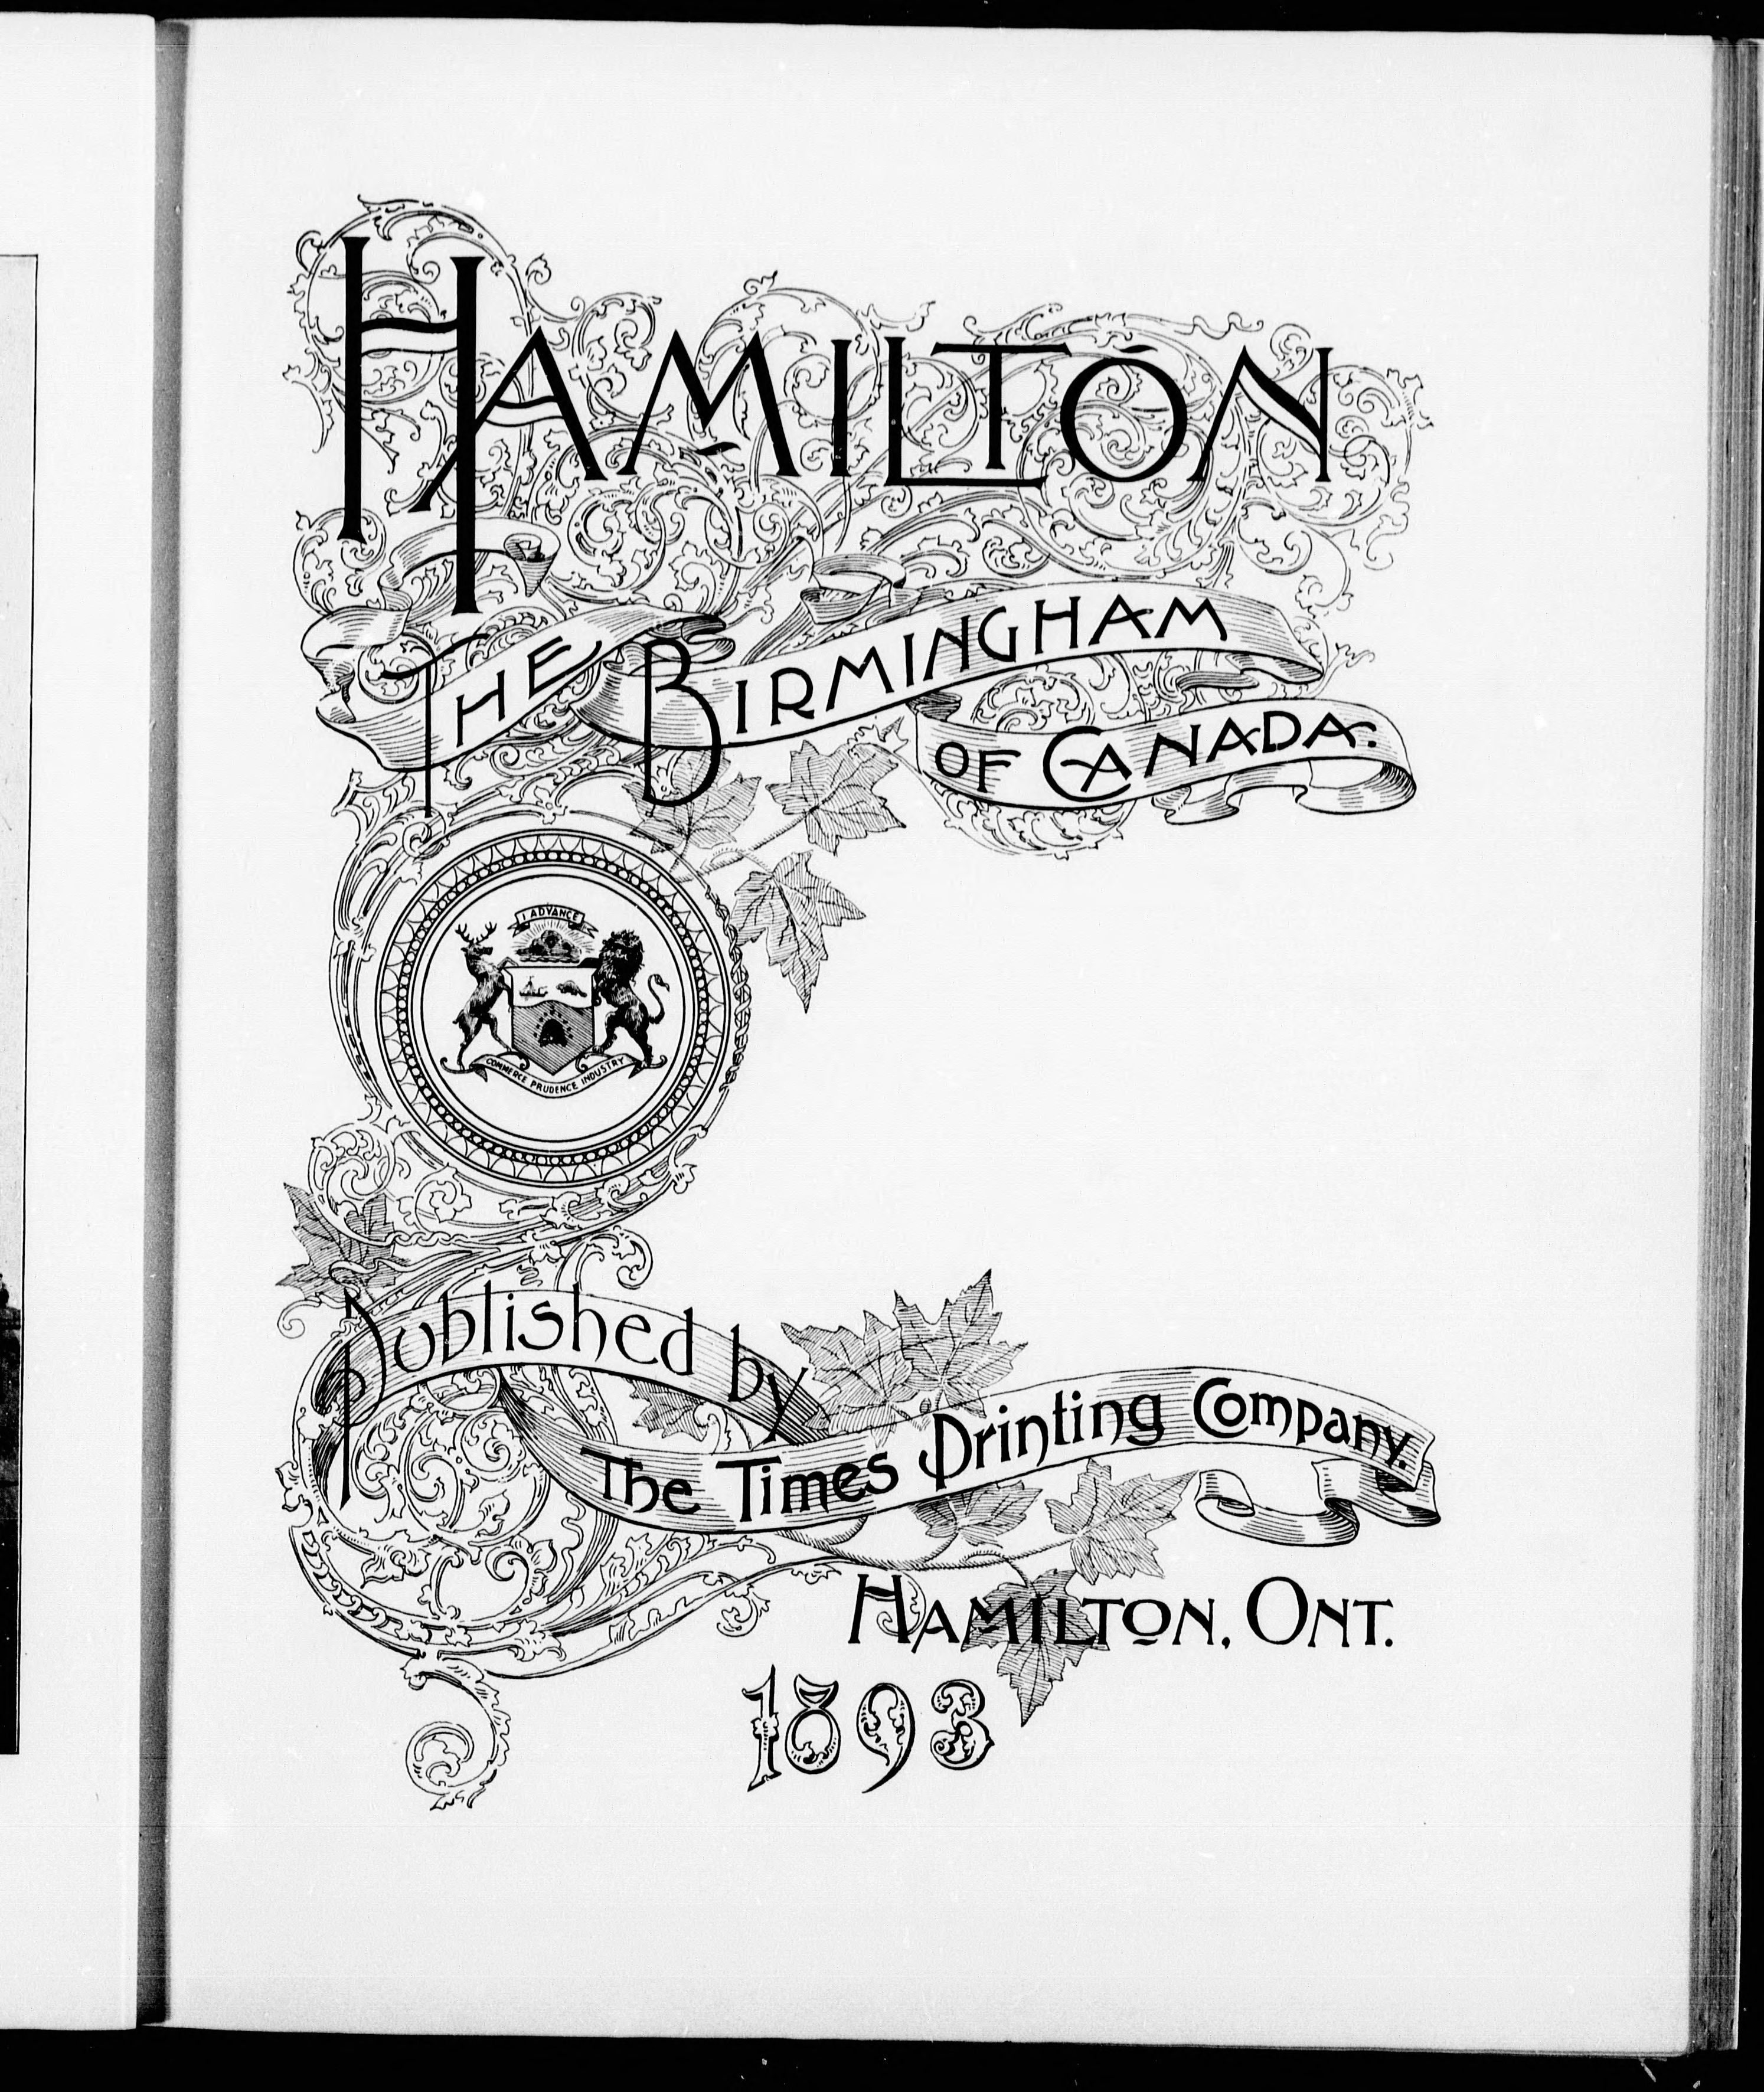 HAMILTON
THE BIRMINGHAM
OF CANADA.
I ADVANCE
COMMERCE PRUDENCE INDUSTRY
Published by
The Times Printing Company.
HAMILTON, ONT.
1893